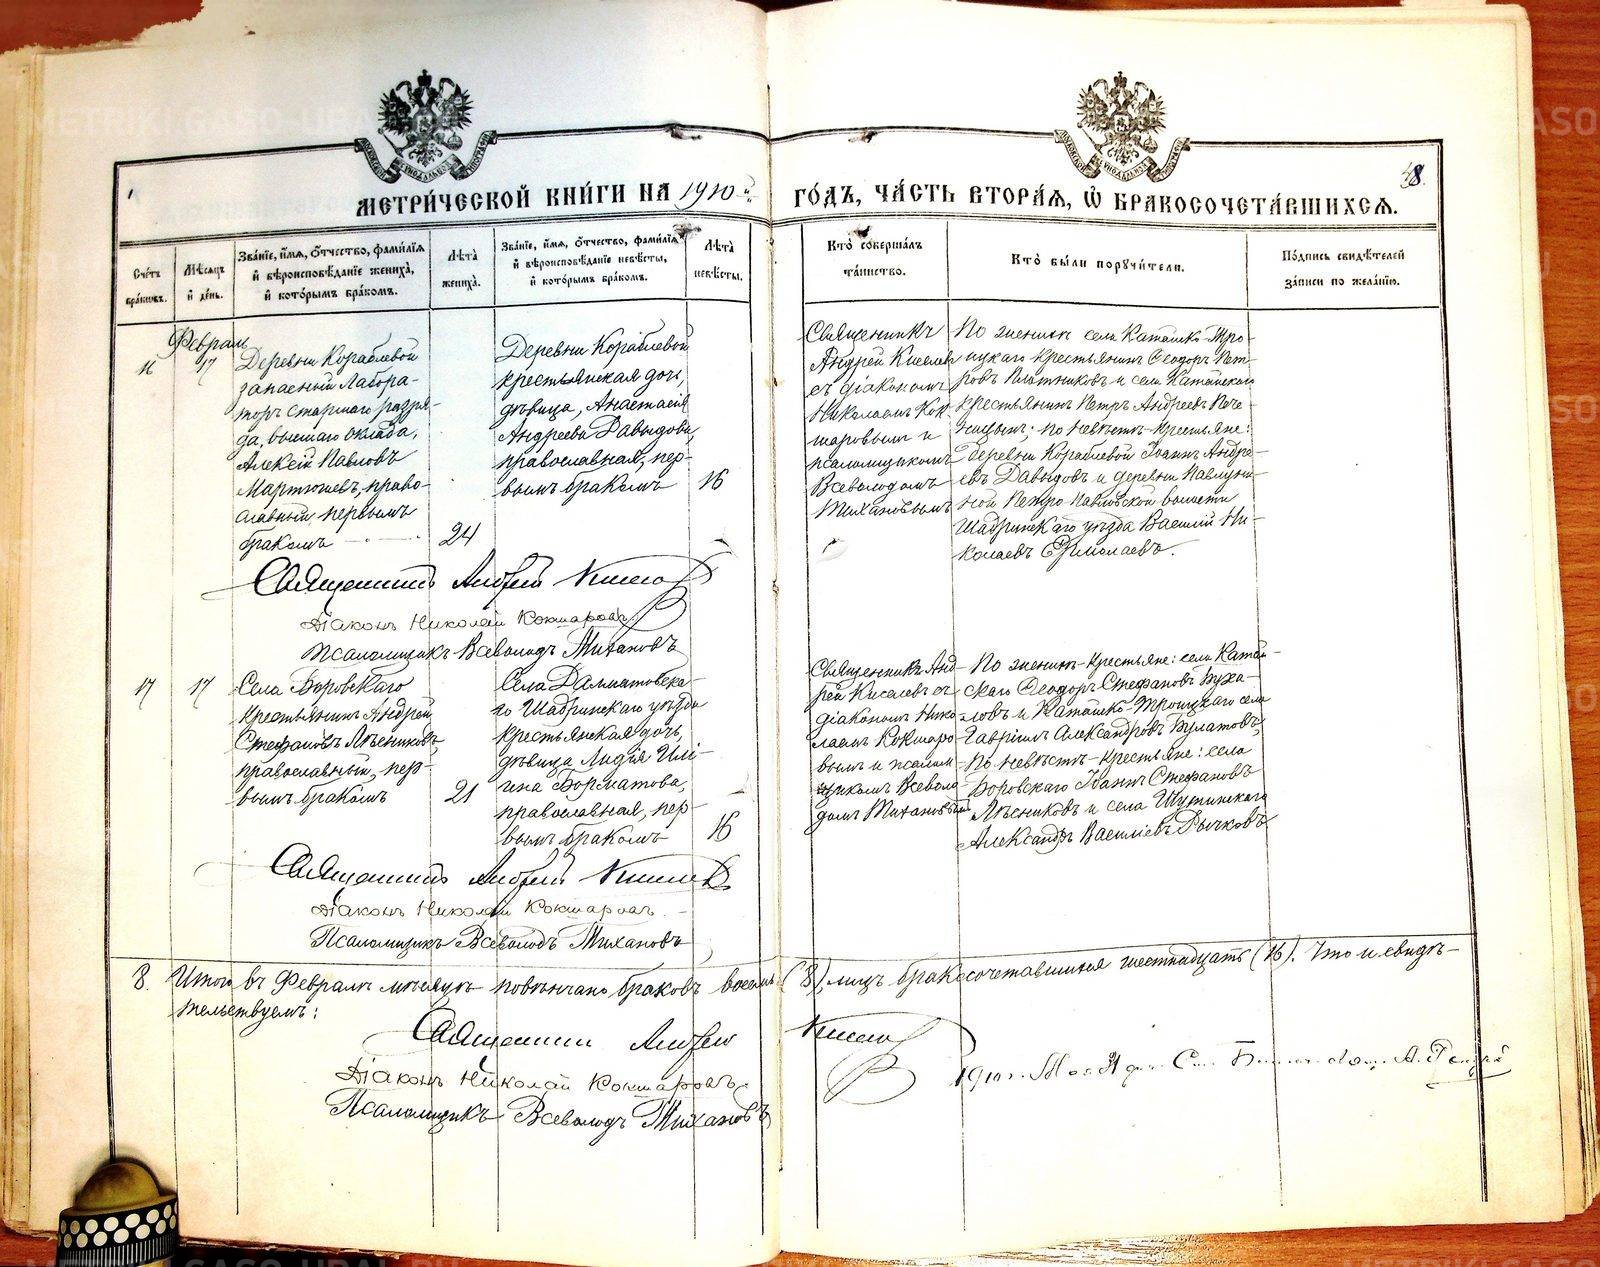 МЕТРИ́ЧЕСКОЙ КНИ́ГИ НА 1910 й
ГО́ДЪ, ЧА́СТЬ ВТОРА́Я, Ѿ БРАКОСОЧЕТА́ВШИХСЯ.
48
Сче́тъ бра́ковъ.
Мѣ́сяцъ и де́нь.
Зва́нїе, и́мя, о́тчество, фами́лїя и вѣроисповѣ́данїе жениха́, и кото́рымъ бра́комъ.
Лѣта̀ жениха̀.
Зва́нїе, и́мя, о́тчество, фами́лїя и вѣроисповѣ́данїе невѣ́сты, и кото́рымъ бра́комъ.
Лѣта̀ невѣ́сты.
Кто̀ соверша́лъ та́инство.
Кто̀ бы́ли поручи́тели.
По́дпись свидѣ́телей за́писи по жела́нїю.
Февраль
16
17
Деревни Кораблевой
запасный Лабора-
торъ старшаго разря-
да, высшаго оклада,
Алексѣй Павловъ
Мартюшевъ, право-
славный, первымъ
бракомъ
24
Деревни Кораблевой
крестьянская дочь,
дѣвица, Анастасія
Андреева Давыдова,
православная, пер-
вымъ бракомъ
16
Священникъ
Андрей Киселев
съ діакономъ
Николаемъ Кок-
шаровымъ и
псаломщикомъ
Всеволодомъ
Тихановымъ
По женихѣ села Катайско-Тро-
ицкаго крестьянинъ Ѳеодоръ Пет-
ровъ Плотниковъ и села Катайскаго
крестьянинъ Петръ Андреевъ Пече-
ницынъ; по невѣстѣ крестьяне:
деревни Кораблевой Іоаннъ Андре-
евъ Давыдовъ и деревни
ной Петро-Павловской волости
Шадринскаго уѣзда Василій Ни-
колаевъ Ермолаевъ.
Священникъ Андрей Киселев
Діаконъ Николай Кокшаровъ
Псаломщикъ Всеволодъ Тихановъ
17
17
Села Боровскаго
крестьянинъ Андрей
Стефановъ Лѣсниковъ,
православный, пер-
вымъ бракомъ
21
Села Далматовска-
го Шадринскаго уѣзда
крестьянская дочь,
дѣвица Лидія Илі-
ина Борматова,
православная, пер-
вымъ бракомъ
16
Священникъ Анд-
рей Киселевъ съ
діакономъ Нико-
лаемъ Кокшаро-
вымъ и псалом-
щикомъ Всеволо-
домъ Тихановымъ
По женихѣ крестьяне: села Катай-
скаго Ѳеодоръ Стефановъ Буха-
ловъ и Катайско-Троицкаго села
Гавріилъ Александровъ Булатовъ,
По невѣстѣ крестьяне: села
Боровскаго Іоаннъ Стефановъ
Лѣсниковъ и села Шутинскаго
Александръ Василіевъ Рычковъ
Священникъ Андрей Киселев
Діаконъ Николай Кокшаровъ
Псаломщикъ Всеволодъ Тихановъ
8. Итого въ Февралѣ мѣсяцѣ повѣнчано браковъ восемь (8), лицъ бракосочетавшихся шестнадцать (16). Что и свидѣ-
тельствуемъ:
Священник Андрей Киселев
Діаконъ Николай Кокшаровъ
Псаломщикъ Всеволодъ Тихановъ
1910 г.